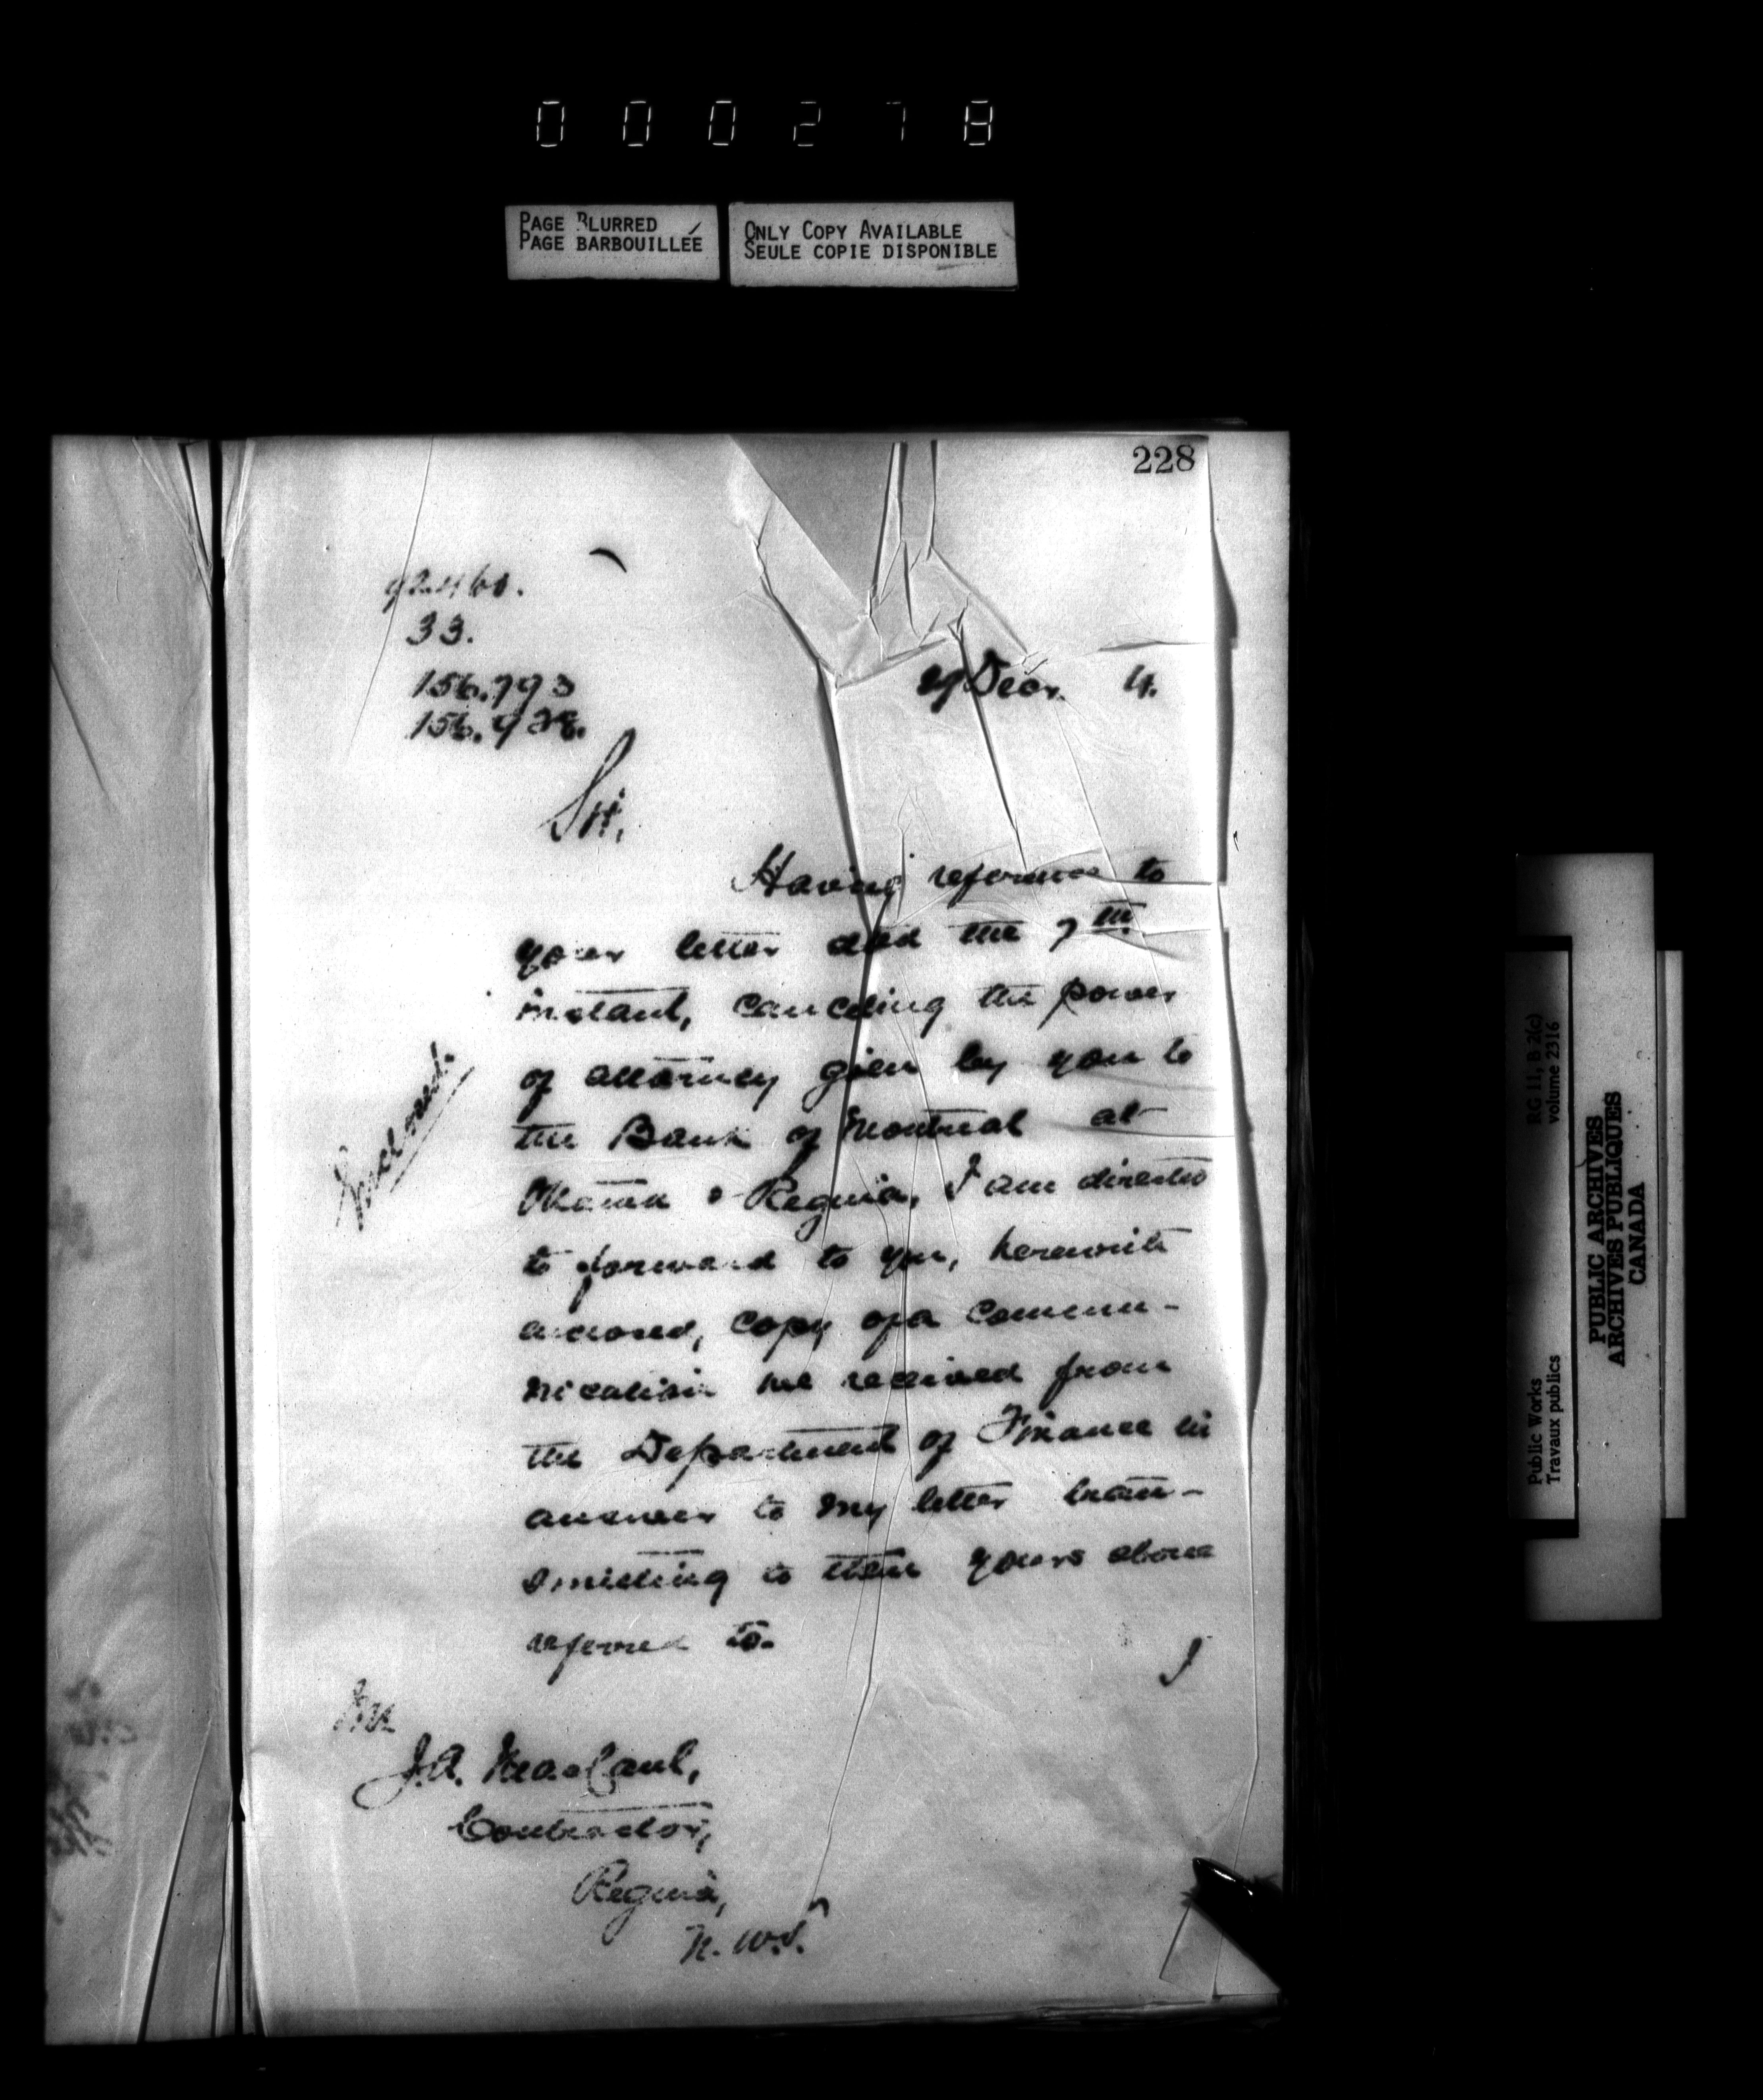 000278
PAGE BLURRED
PAGE BARBOUILLÉE
ONLY COPY AVAILABLE
SEULE COPIE DISPONIBLE
228
33.
156.793
156.928.
27 Decr. 4.
Sir,
Having reference to
your letter dated the 7th
instant, canceling the power
of attorney given by you to
the Bank of Montreal at
Ottawa & Regina, I am directed
to forward to you, herewith
enclosed, copy of a commu-
nication we received from
the Department of Finance in
answer to my letter tran-
smitting to them yours above
referred to.
I
Enclosed.
Mr
J.A.
Contractor,
Regina,
N.W.T.
Public Works
Travaux publics
RG 11, B 2(c)
volume 2316
PUBLIC ARCHIVES
ARCHIVES PUBLIQUES
CANADA